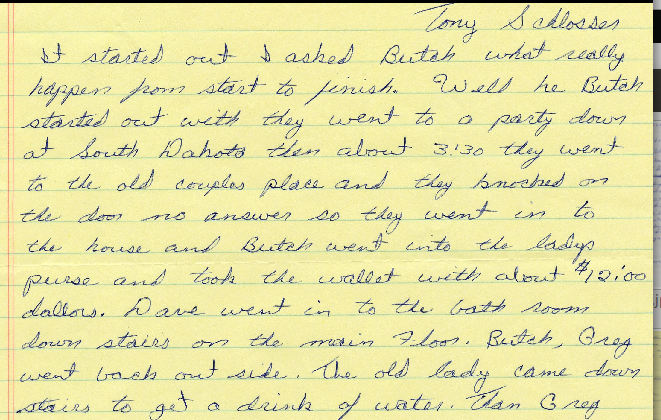 Tony Schlosser
It started out I asked Butch what really
happen from start to finish. Well he Butch
started out with they went to a party down
at South Dahota then about 3:30 they went
to the old couples place and they knocked on
the door no answer so they went in to
the house and Butch went into the ladys
purse and took the wallet with about $12:00
dallors. Dave went in to the bath room
down stairs on the main Floor. Butch, Greg
went back out side. The old lady came down
stairs to get a drink of water. Than Greg